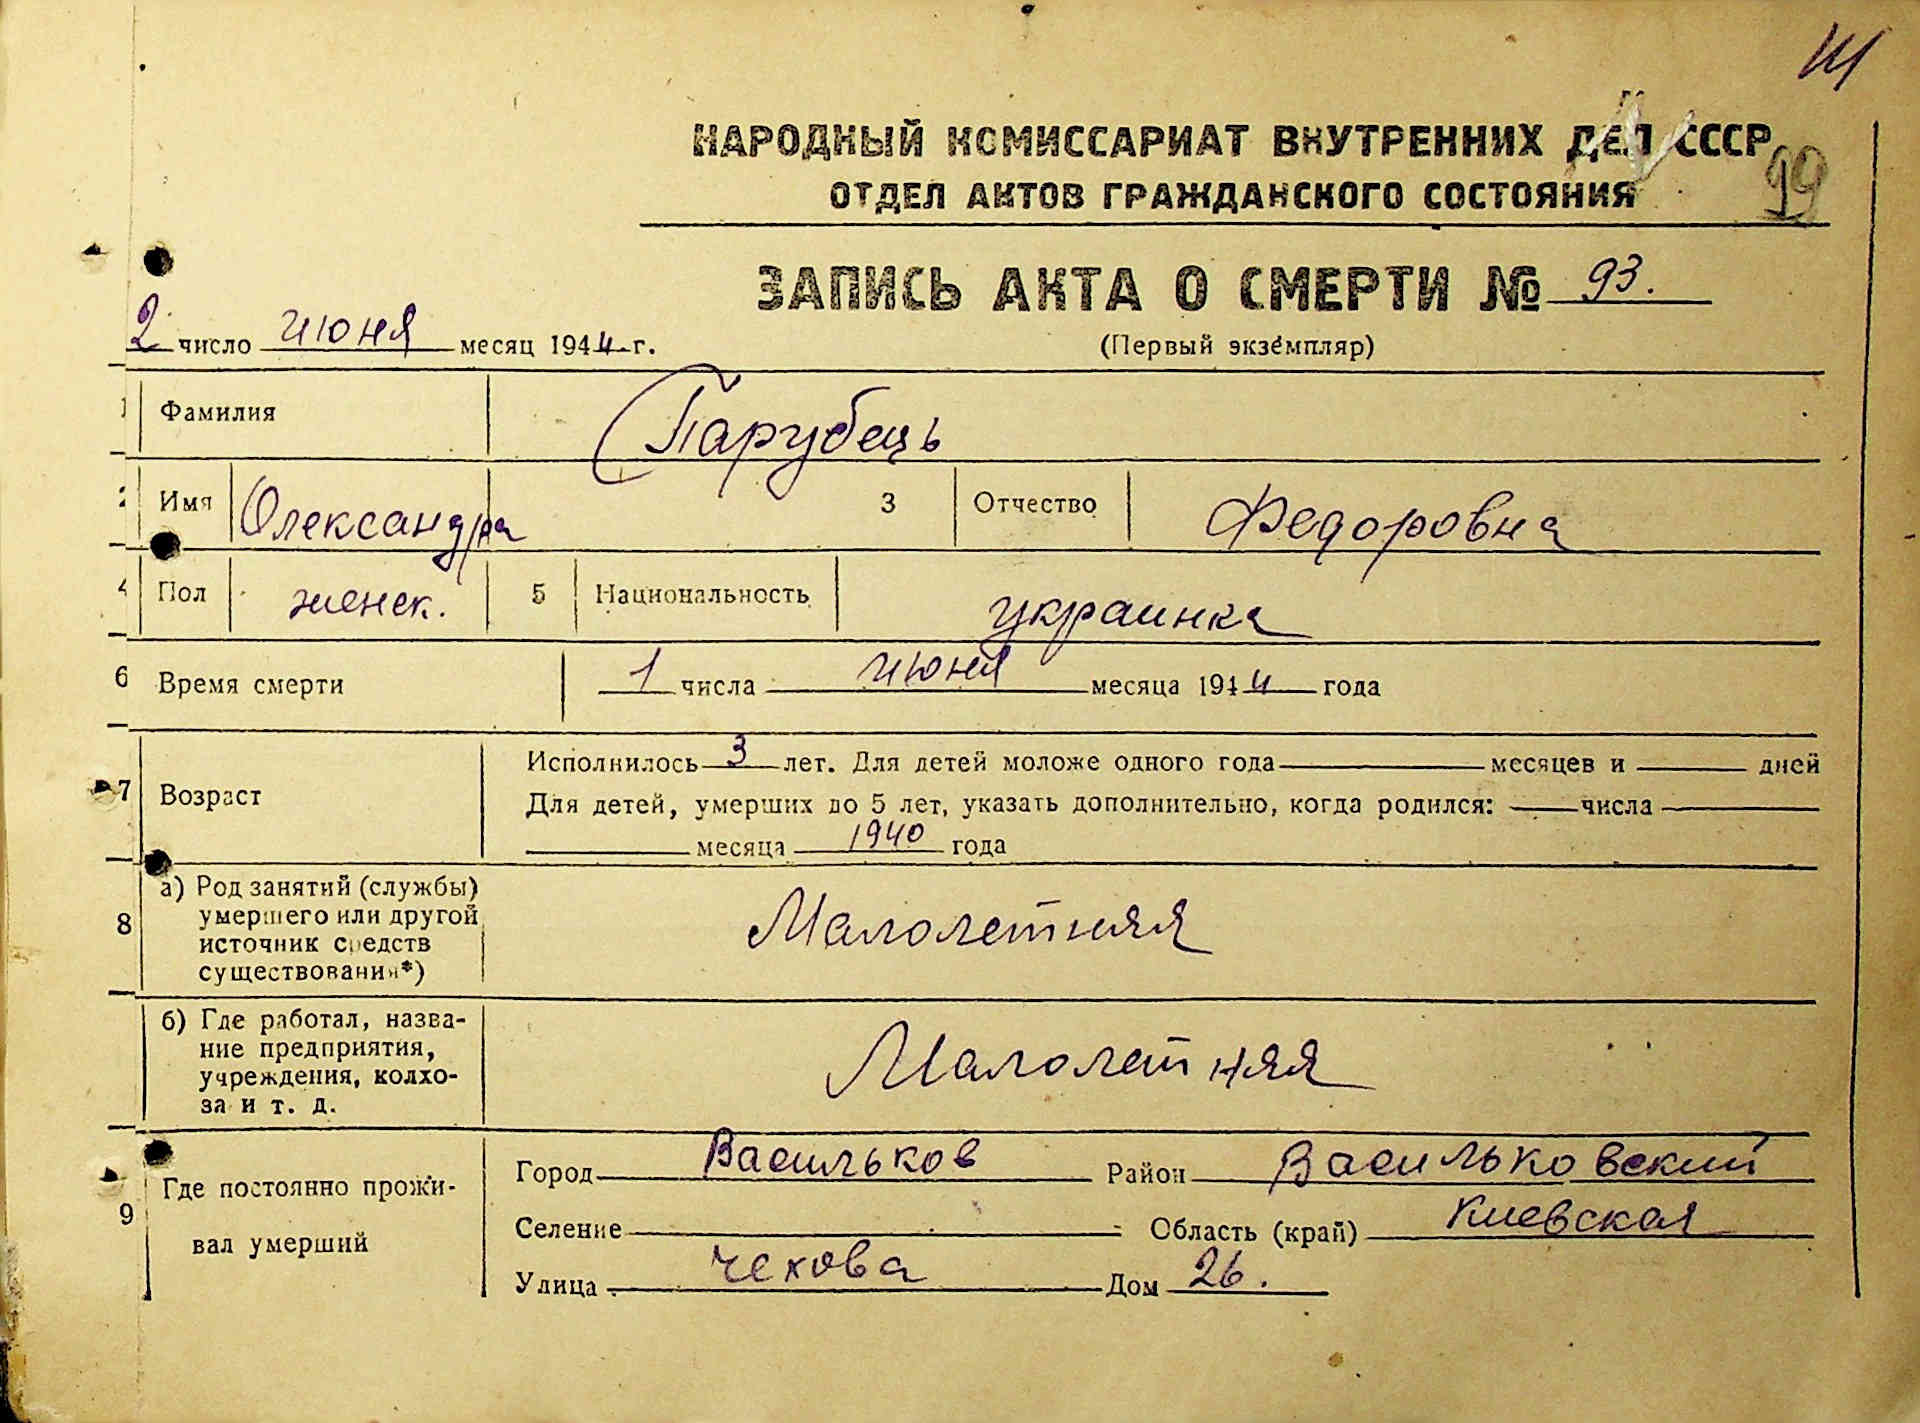 НАРОДНЫЙ КОМИССАРИАТ ВНУТРЕННИХ ДЕЛ СССР
99
ОТДЕЛ АКТОВ ГРАЖДАНСКОГО СОСТОЯНИЯ
ЗАПИСЬ АКТА О СМЕРТИ № 93.
2 число июня месяц 1944 г.
(Первый экземпляр)
1 Фамилия Парубець
2 Имя Олександра 3 Отчество Федоровна
4 Пол женск. 5 Национальность украинка
6 Время смерти 1 числа июня месяца 1944 года
7 Возраст
Исполнилось 3 лет. Для детей моложе одного года месяцев и дней
Для детей, умерших до 5 лет, указать дополнительно, когда родился: числа
месяца 1940 года
8 а) Род занятий (службы)
умершего или другой
источник средств
существования*)
Малолетняя
б) Где работал, назва-
ние предприятия,
учреждения, колхо-
за и т. д.
Малолетняя
9 Где постоянно прожи-
вал умерший
Город Васильков Район Васильковский
Селение Область (край) Киевская
Улица Чехова Дом 26.